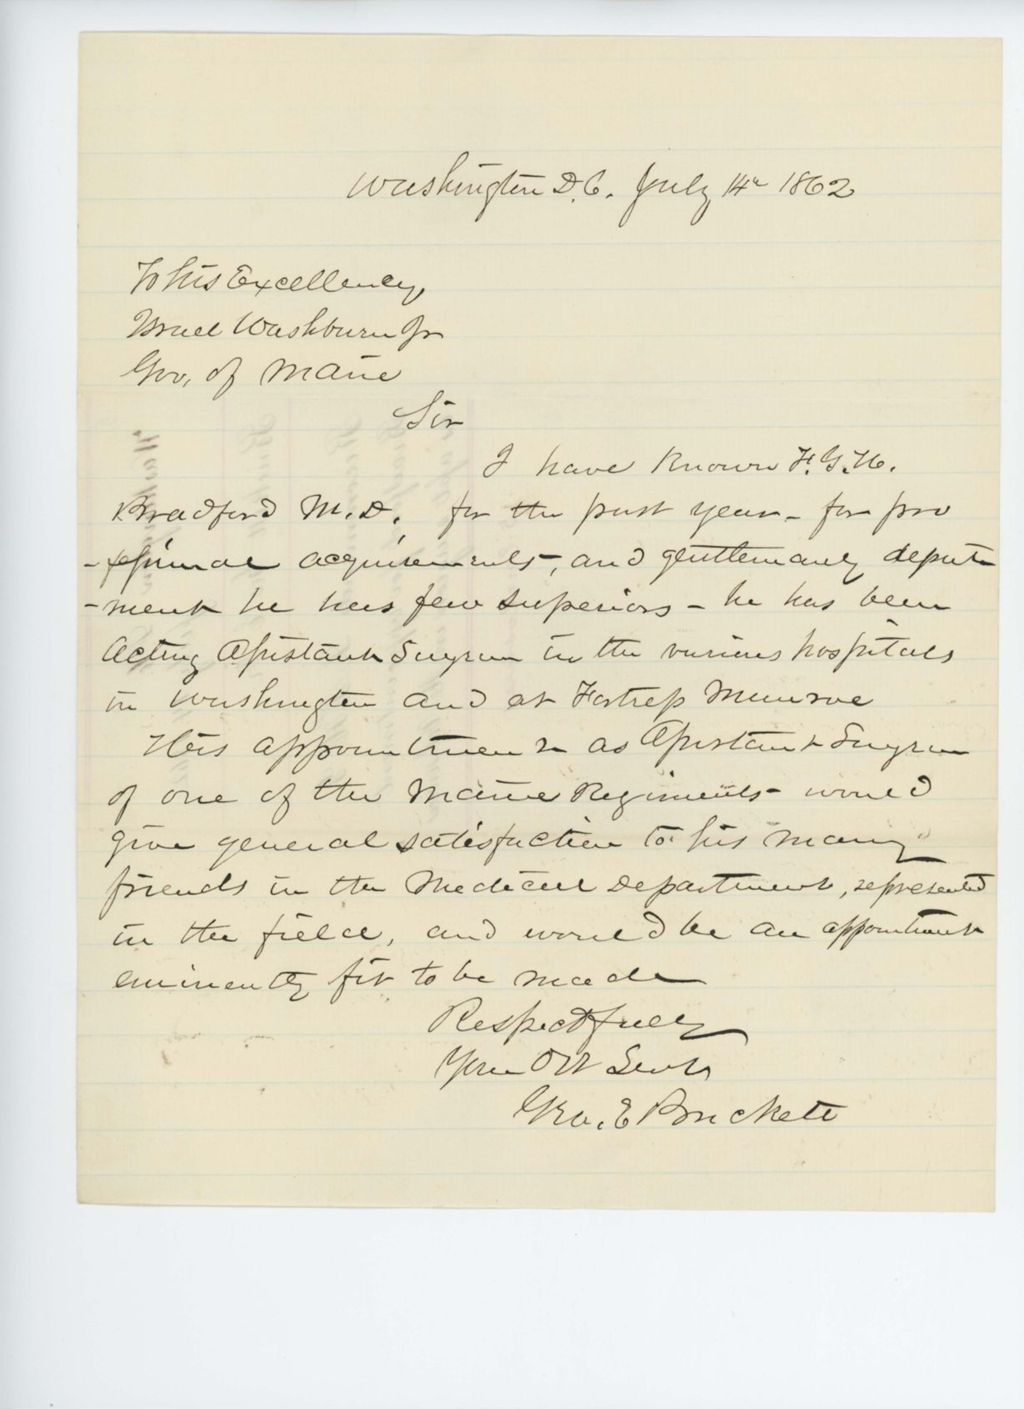 Washington D.C. July 14th 1862
To his Excellency,
Israel Washburn Jr
Gov. of Maine
Sir
I have known F. G. H.
Bradford M.D. for the past year - for pro
-fessional acquirements, and gentlemanly deport
-ment he has few superiors - he has been
Acting Assistant Surgeon in the various hospitals
in Washington and at Fortress Munroe
His appointment as Assistant Surgeon
of one of the Maine Regiments would
give general satisfaction to his many
friends in the Medical Department, represented
in the field, and would be an appointment
eminently fit to be made
Respectfully
Your Obt Servt
Geo. E. Brickett